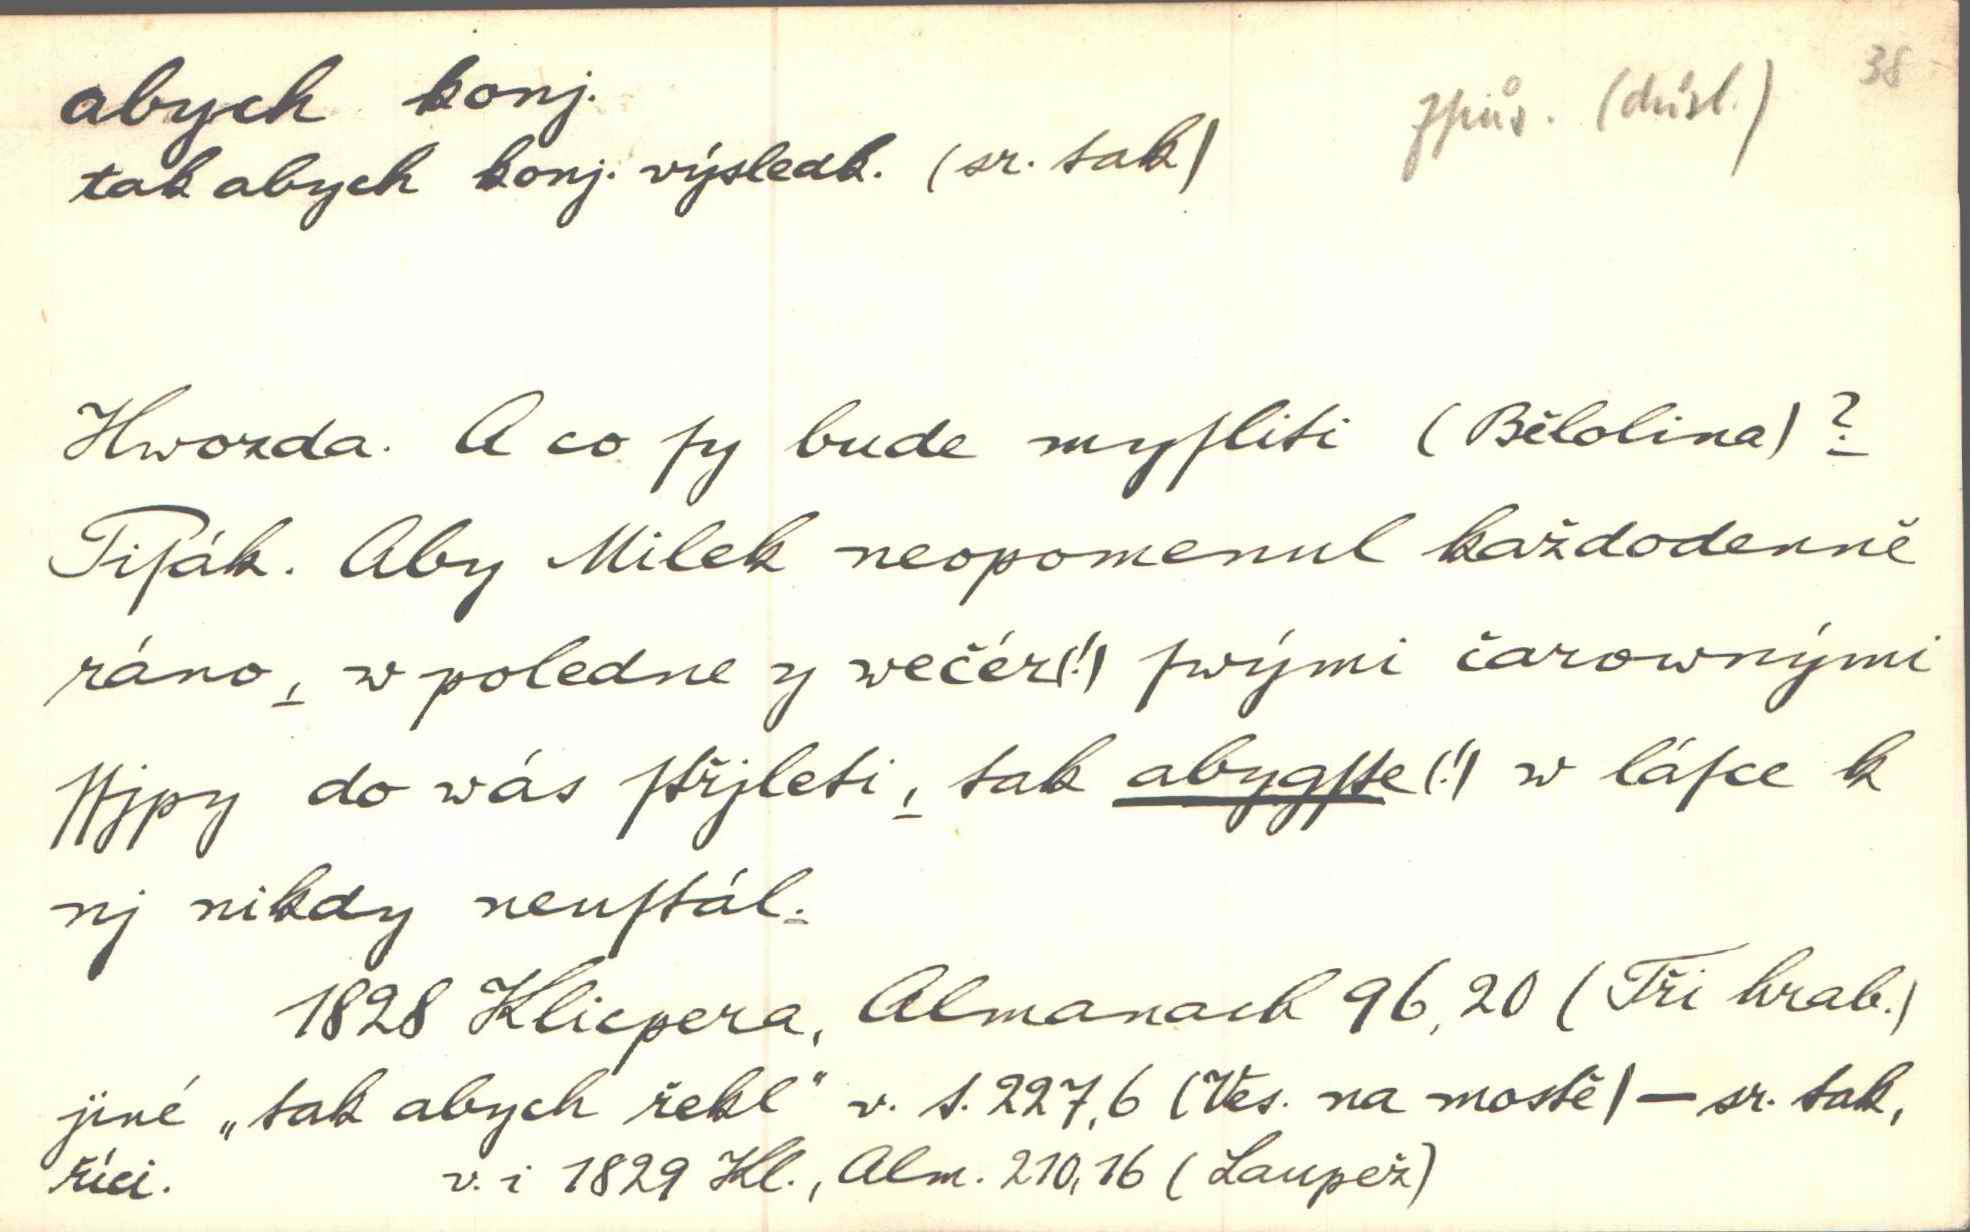 38
abych konj.
způs. (důsl.)
tak abych konj. výsledk. (sr. tak)
Hwozda. A co ſy bude myſliti (Bělolina)?
Piſák. Aby Milek neopomenul každodenně
ráno, w poledne y večér(!) ſwými čarownými
ſſjpy do wás ſtřjleti, tak abygſte(!) w láſce k
nj nikdy neuſtál.
1828 Klicpera, Almanach 96,20 (Tři hrab.)
jiné „tak abych řekl“ v. t. 227,6 (Ves. na mostě) – sr. tak,
říci. v. i 1829 Kl., Alm. 210,16 (Laupež)